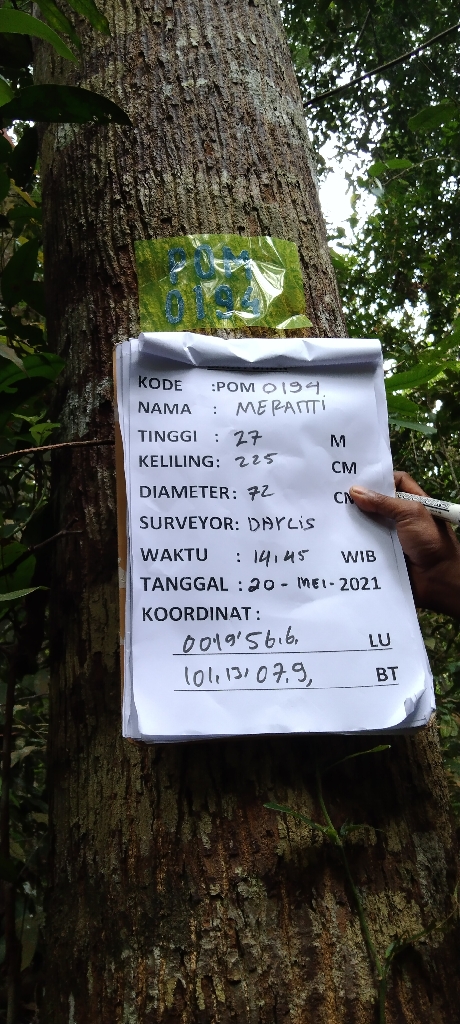 POM
0194
KODE :POM 0194
NAMA : MERANTI
TINGGI : 27 M
KELILING: 225 CM
DIAMETER: 72 CM
SURVEYOR: DAYLIS
WAKTU : 14.45 WIB
TANGGAL : 20 - MEI - 2021
KOORDINAT :
0019'56.6, LU
101.13,07.9, BT